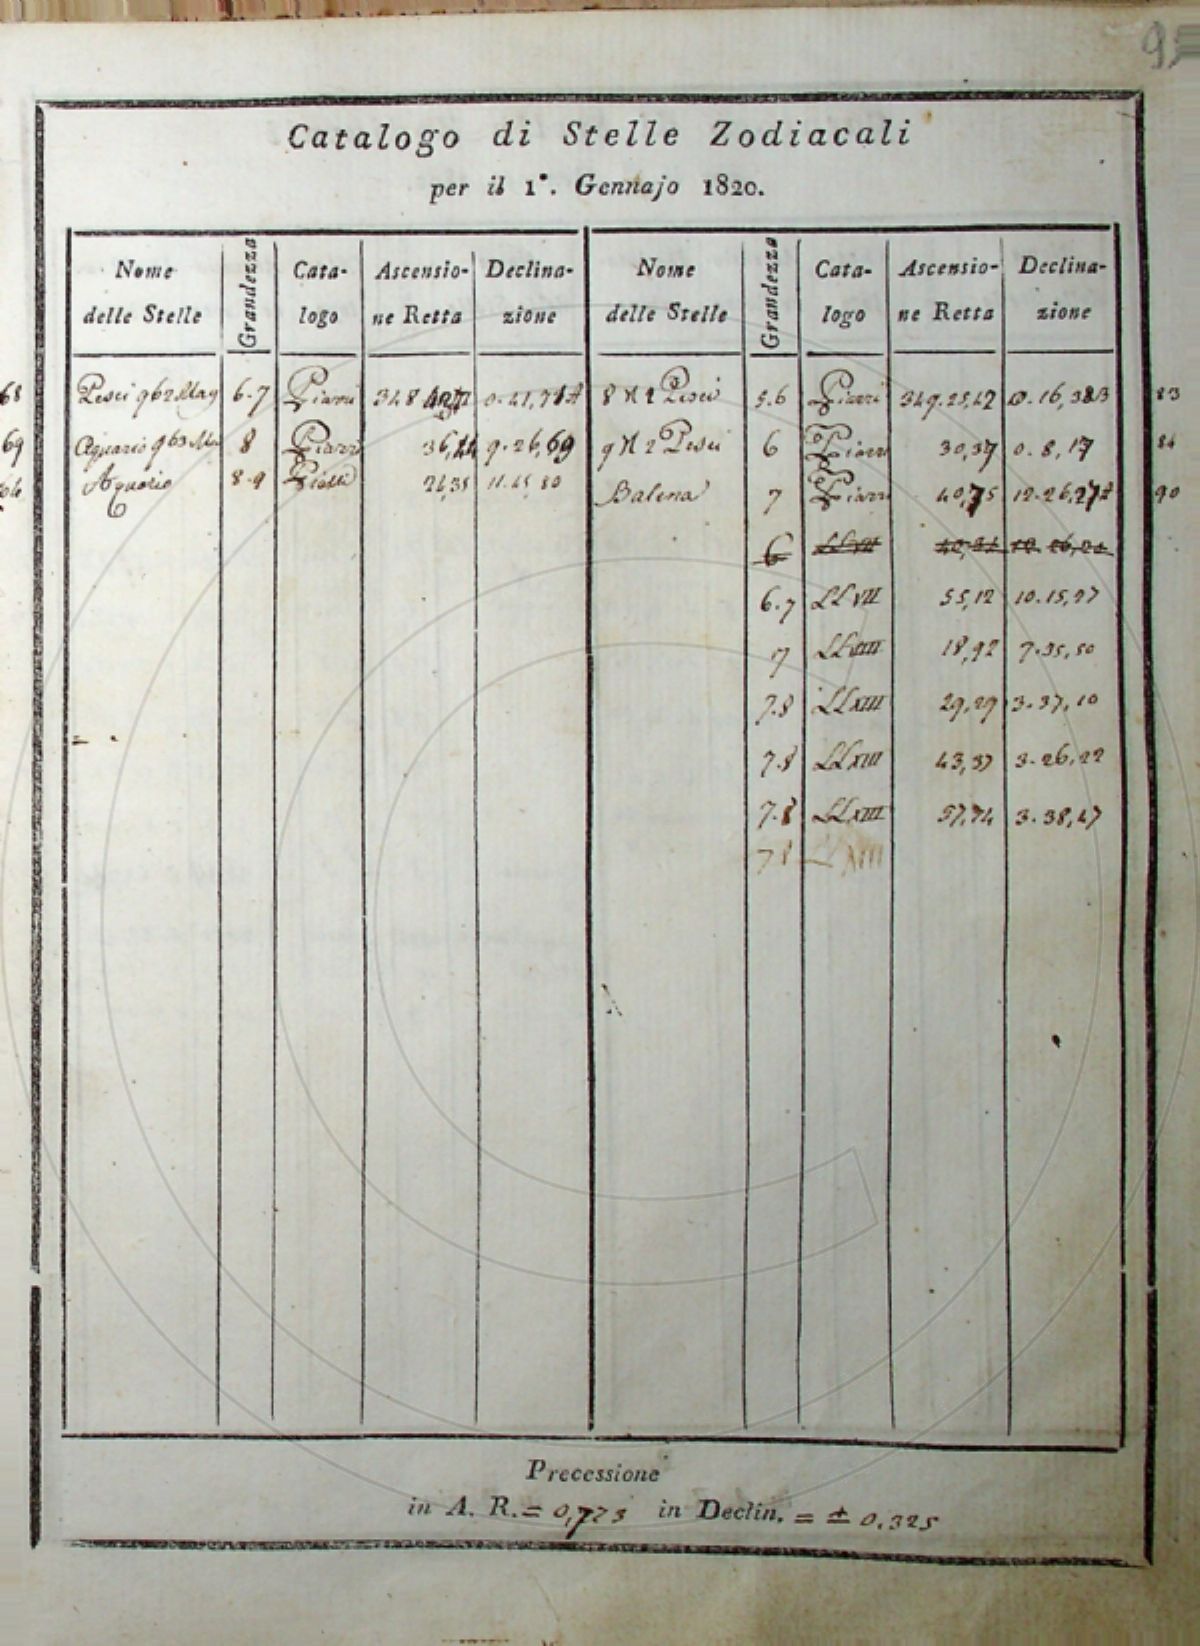 Catalogo di Stelle Zodiacali
per il 1°. Gennajo 1820.
Nome delle Stelle Grandezza Catalogo Ascensione Retta Declinazione Nome delle Stelle Grandezza Catalogo Ascensione Retta Declinazione
68 Pesci 962 May 6.7 Piazzi 348 0.41,78A 8 H 2 Pesci 5.6 Piazzi 349.25,47 0.16,38B 83
69 Aquario 963 Ma 8 Piazzi 36,44 9.26,69 9 H 2 Pesci 6 Piazzi 30,37 0.8,17 84
Aquario 8.9 Piazzi 24,35 11.45,80 Balena 7 Piazzi 40,75 12.26,27A 90
6 LL VII
6.7 LL VII 55,12 10.15,97
7 LL VIII 18,92 7.35,50
7.8 LL XIII 29,29 3.37,10
7.8 LL XIII 43,37 3.26,22
7.8 LL XIII 57,74 3.38,47
7.8 LL XIII
Precessione
in A. R. = 0,773 in Declin. = ± 0,325